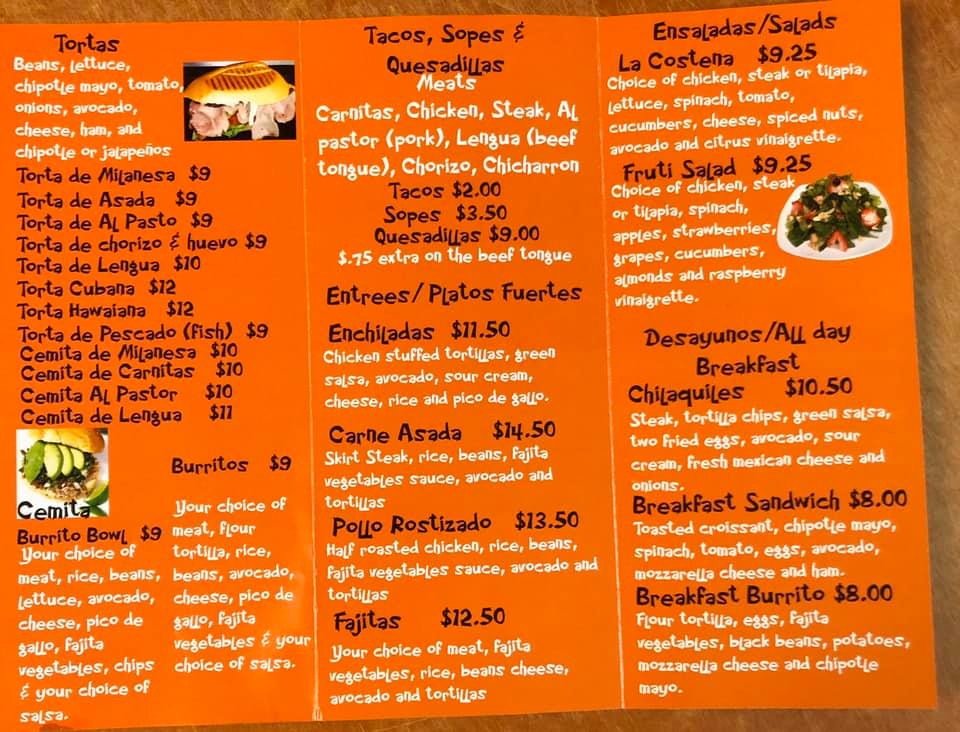 Tortas
Beans, lettuce,
chipotle mayo, tomato,
onions, avocado,
cheese, ham, and
chipotle or jalapeños
Torta de Milanesa $9
Torta de Asada $9
Torta de Al Pasto $9
Torta de chorizo & huevo $9
Torta de Lengua $10
Torta Cubana $12
Torta Hawaiana $12
Torta de Pescado (fish) $9
Cemita de Milanesa $10
Cemita de Carnitas $10
Cemita Al Pastor $10
Cemita de Lengua $11
Cemita
Burrito Bowl $9
Your choice of
meat, rice, beans,
lettuce, avocado,
cheese, pico de
gallo, fajita
vegetables, chips
& your choice of
salsa.
Burritos $9
Your choice of
meat, flour
tortilla, rice,
beans, avocado,
cheese, pico de
gallo, fajita
vegetables & your
choice of salsa.
Tacos, Sopes &
Quesadillas
Meats
Carnitas, Chicken, Steak, Al
pastor (pork), Lengua (beef
tongue), Chorizo, Chicharron
Tacos $2.00
Sopes $3.50
Quesadillas $9.00
$.75 extra on the beef tongue
Entrees/ Platos Fuertes
Enchiladas $11.50
Chicken stuffed tortillas, green
salsa, avocado, sour cream,
cheese, rice and pico de gallo.
Carne Asada $14.50
Skirt Steak, rice, beans, fajita
vegetables sauce, avocado and
tortillas
Pollo Rostizado $13.50
Half roasted chicken, rice, beans,
fajita vegetables sauce, avocado and
tortillas
Fajitas $12.50
Your choice of meat, fajita
vegetables, rice, beans cheese,
avocado and tortillas
Ensaladas/Salads
La Costena $9.25
Choice of chicken, steak or tilapia,
lettuce, spinach, tomato,
cucumbers, cheese, spiced nuts,
avocado and citrus vinaigrette.
Fruti Salad $9.25
Choice of chicken, steak
or tilapia, spinach,
apples, strawberries,
grapes, cucumbers,
almonds and raspberry
vinaigrette.
Desayunos/All day
Breakfast
Chilaquiles $10.50
Steak, tortilla chips, green salsa,
two fried eggs, avocado, sour
cream, fresh mexican cheese and
onions.
Breakfast Sandwich $8.00
Toasted croissant, chipotle mayo,
spinach, tomato, eggs, avocado,
mozzarella cheese and ham.
Breakfast Burrito $8.00
Flour tortilla, eggs, fajita
vegetables, black beans, potatoes,
mozzarella cheese and chipotle
mayo.